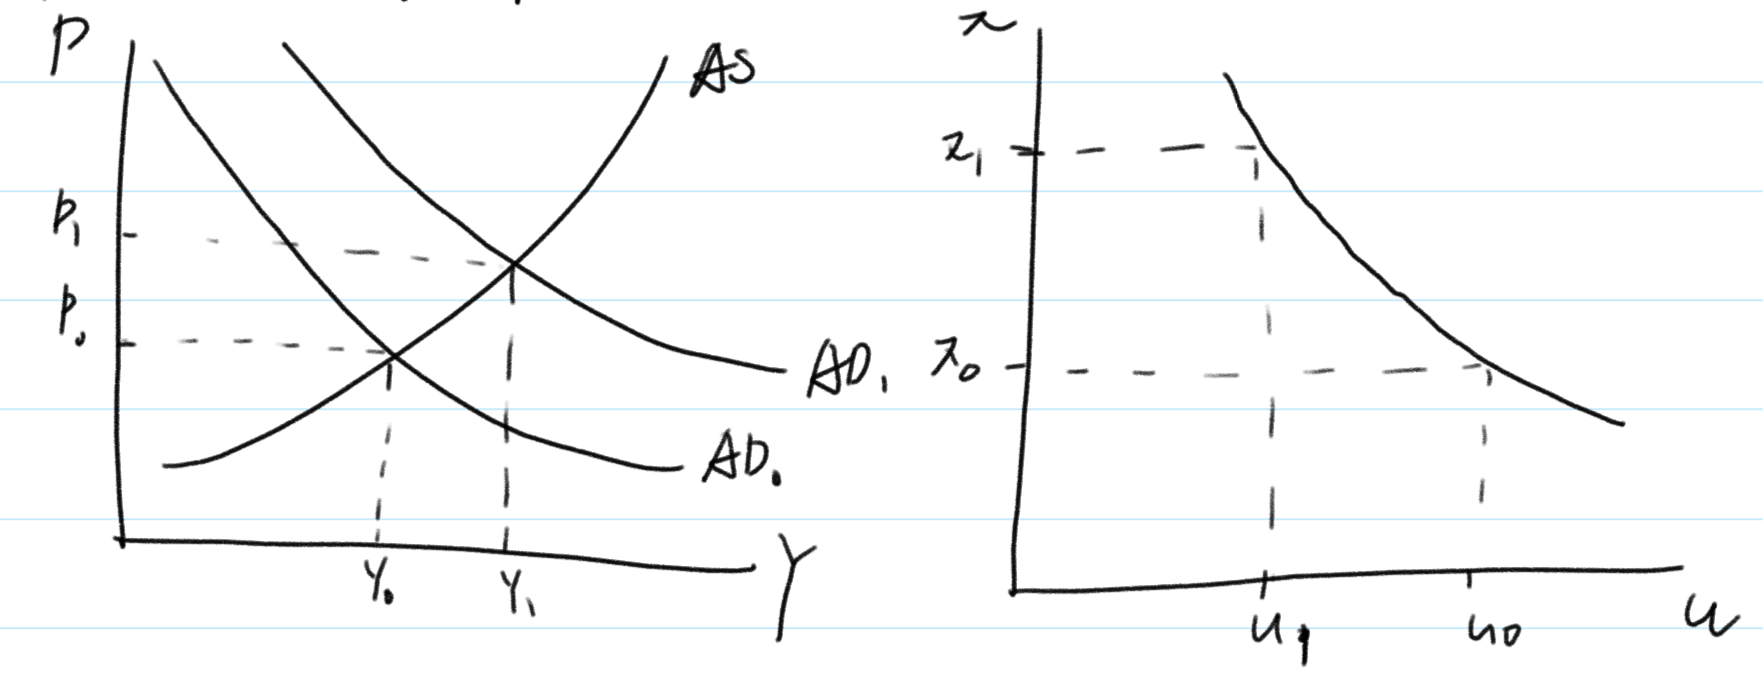 P
AS
P₁
P₀
AD₁
AD₀
Y₀
Y₁
Y
π
π₁
π₀
u₁
u₀
u